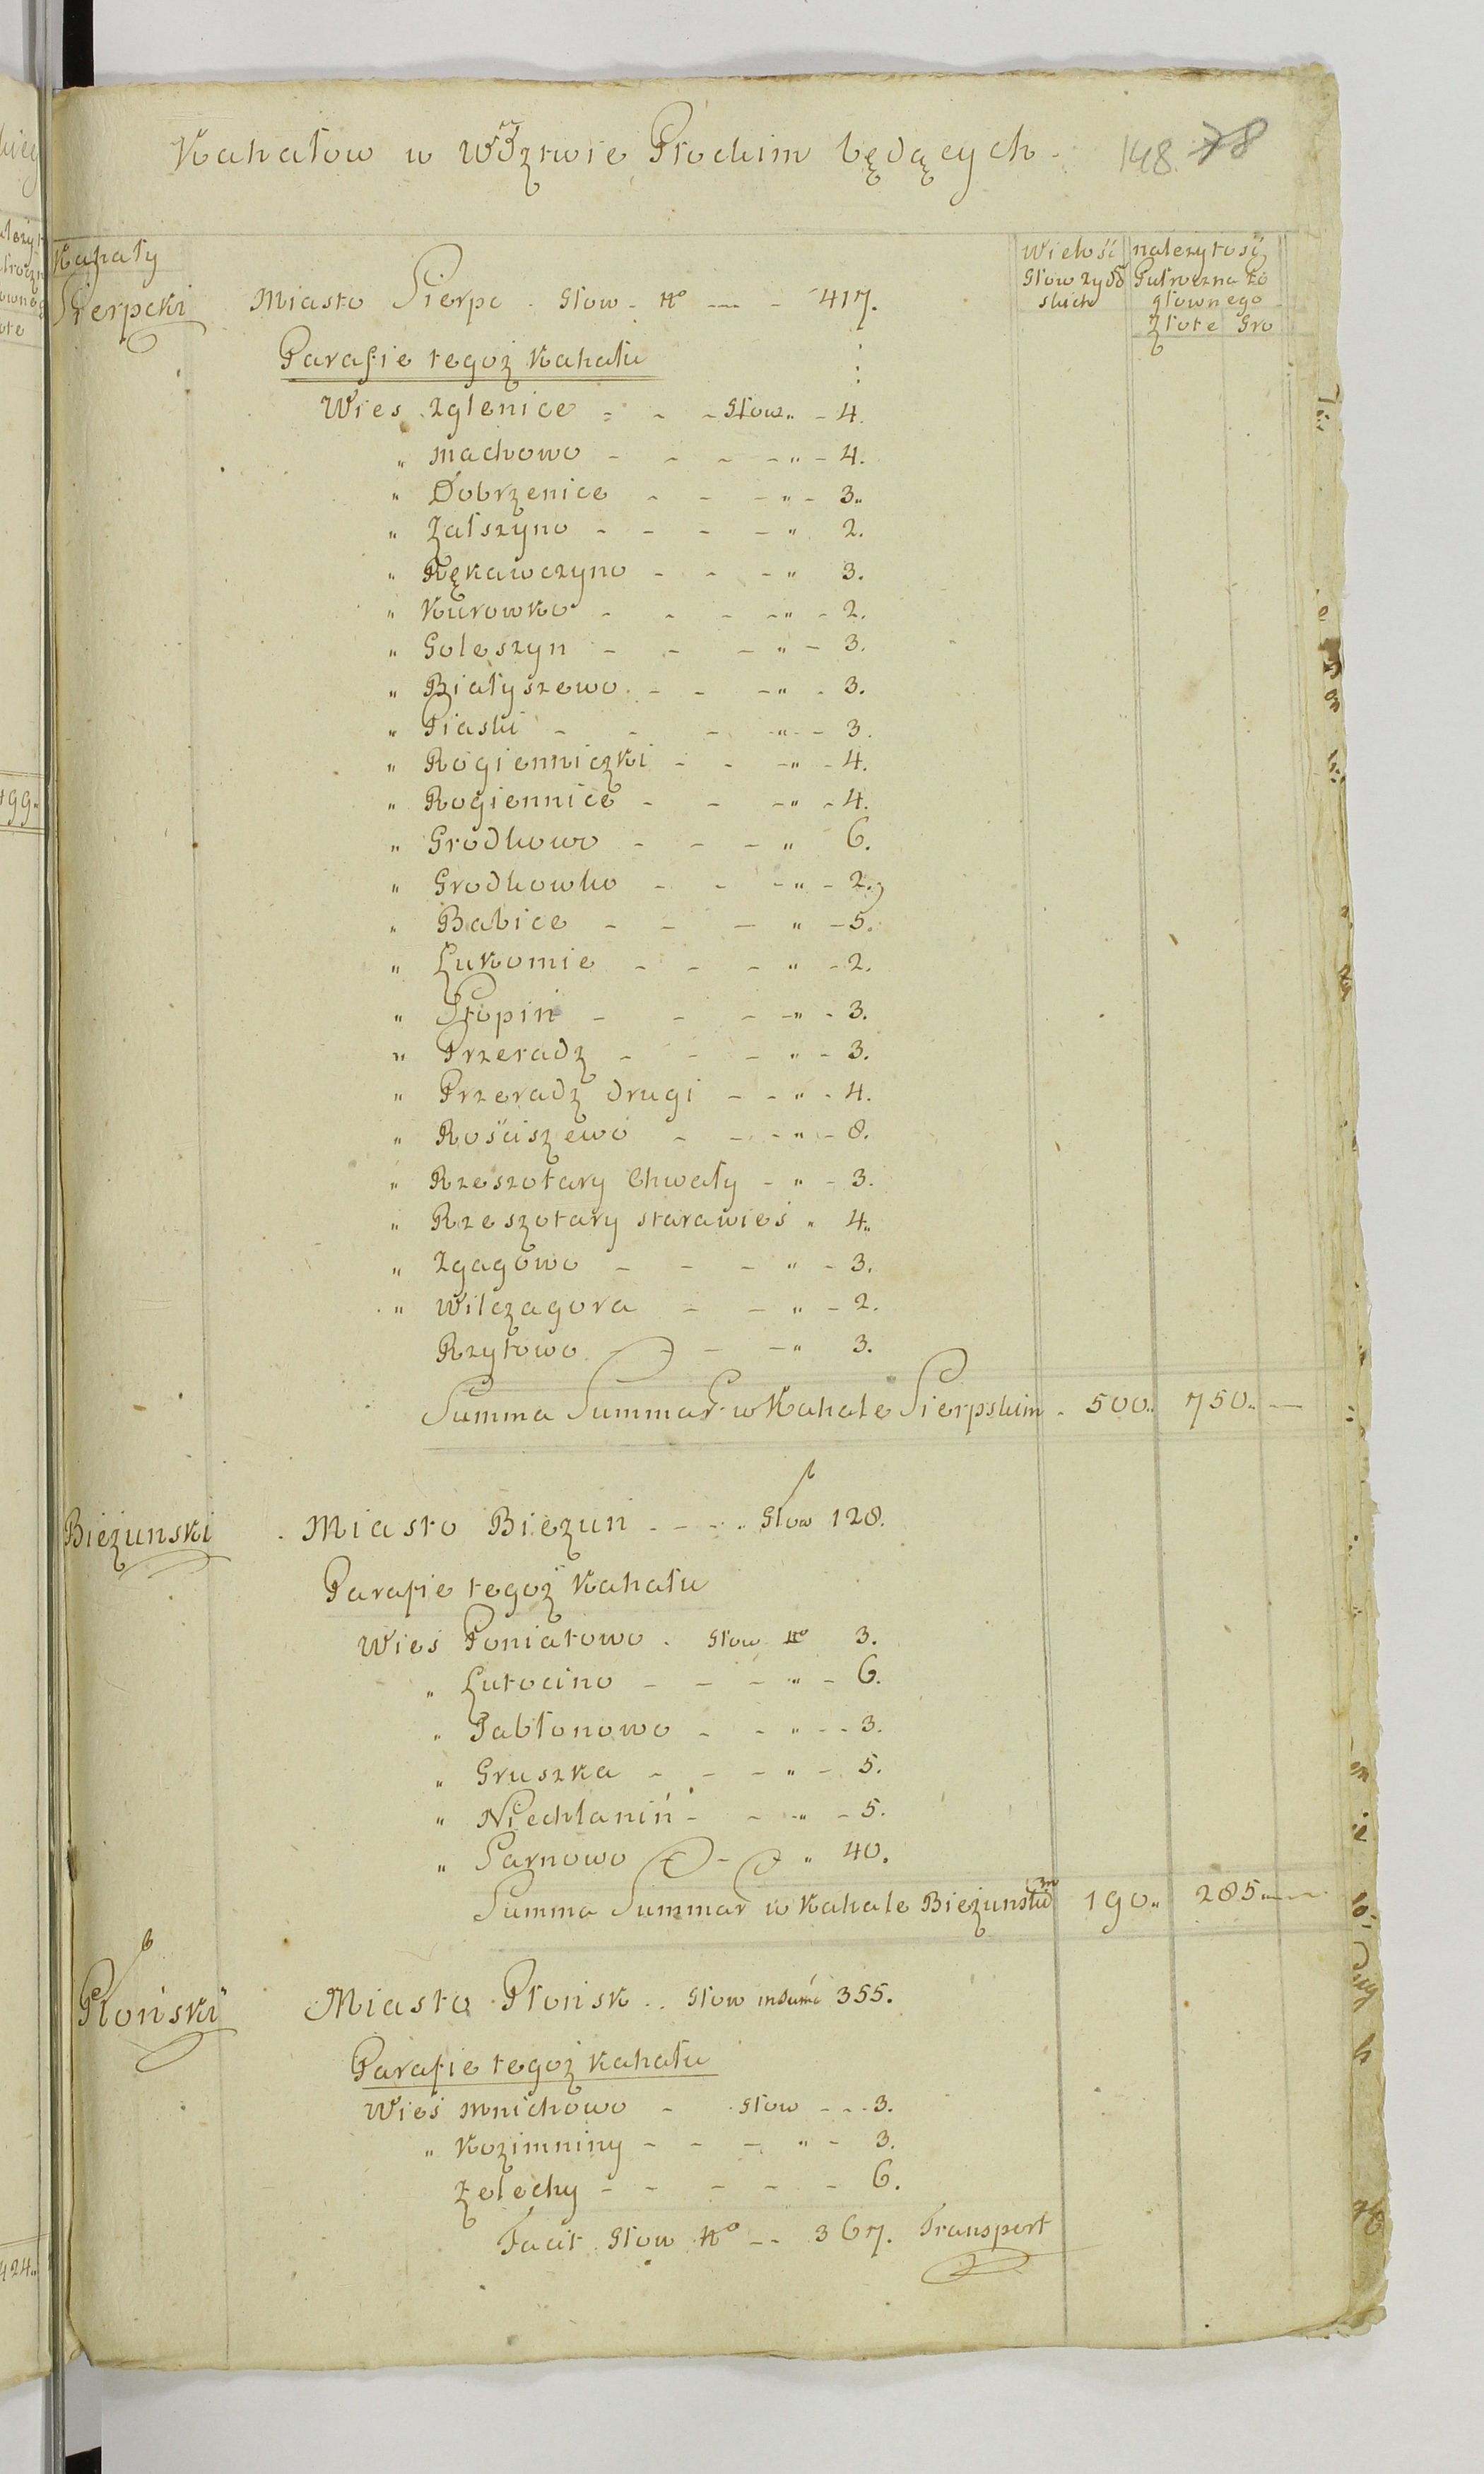 Kahałow w Wdztwie Płockim będących. 148. 78
Kahały
Sierpcki
Wielość Głow żydo skich
należytość Pułroczna po głownego
Złote Gro
Miasto Sierpc. Głow. No — - 417.
Parafie tegoż Kahału
Wies Zglenice - - - Głow. - 4.
" Machowo - - - - " - 4.
" Dobrzenice - - - " - 3.
" Załszyno - - - - " 2.
" Rękawczyno - - - " 3.
" Kurowko - - - - " - 2.
" Goleszyn - - - " - 3.
" Białyszewo. - - - " - 3.
" Piaski - - - " - 3.
" Rogienniczki - - - " - 4.
" Rogiennice - - - " - 4.
" Grodkowo - - - " 6.
" Grodkowko - - - " - 2.
" Babice - - - " - 5.
" Łukomie - - - " - 2.
" Stopin - - - - " - 3.
" Przeradz - - - " - 3.
" Przeradz drugi - - " - 4.
" Rościszewo - - - " - 8.
" Rzeszotary Chwały - " - 3.
" Rzeszotary starawieś " 4.
" Zgagowo - - - " - 3.
" Wilczagora - - " - 2.
Rzytowo - - - " 3.
Summa Summar. w Kahale Sierpskim - 500. 750. —
Bieżunski
Miasto Bieżun - - - Głow 128.
Parafie tegoż Kahału
Wieś Poniatowo. Głow No 3.
" Lutocino - - - " - 6.
" Jabłonowo - - " - - 3.
" Gruszka - - - " - 5.
" Niechłanin - - " - 5.
" Sarnowo - " 40.
Summa Summar w Kahale Bieżunskim 190. 285. —
Płoński
Miasto Płońsk .. Głow 355.
Parafie tegoż Kahału
Wieś Mnichowo - Głow - - - 3.
" Kozimniny - - - " - 3.
Żelechy - - - - - 6.
Facit Głow No - - 367. Transport